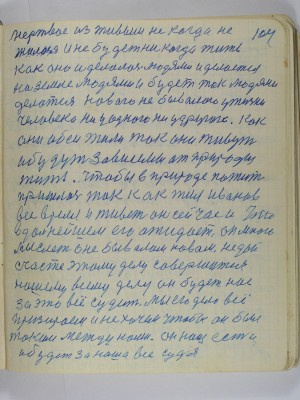 мертвое из живым не когда не 104
жилося и не будет ни когда жить
Как оно и делалося людями и делается
на земле людями и будет так людями
делатся нового не бывалого у жизни
человека ни у одного ни у другого. Как
они обси жили так они живут
и будут зависеми от природы
жить. Чтобы в природе пожить
пришлося так как жил Иванов
все время и живет он сейчас и
в дальнейшем его ожидает, он много
мыслет о не бывалом новом, не дай
счасте этому делу совершится
нашему всему делу он будет нас
за это всё судит. Мы сегодня всё
призираем и не хочем чтобы он был
таким между нами. Он наш есть и
и будет за наша все судья